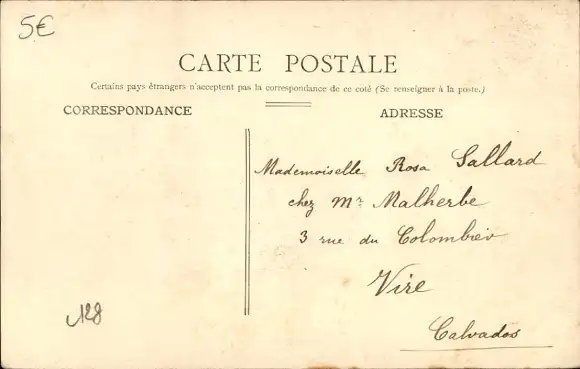 5€
CARTE POSTALE
Certains pays étrangers n'acceptent pas la correspondance de ce coté (Se renseigner à la poste.)
CORRESPONDANCE
ADRESSE
Mademoiselle Rosa Gallard
chez Mr Malherbe
3 rue du Colombier
Vire
Calvados
128